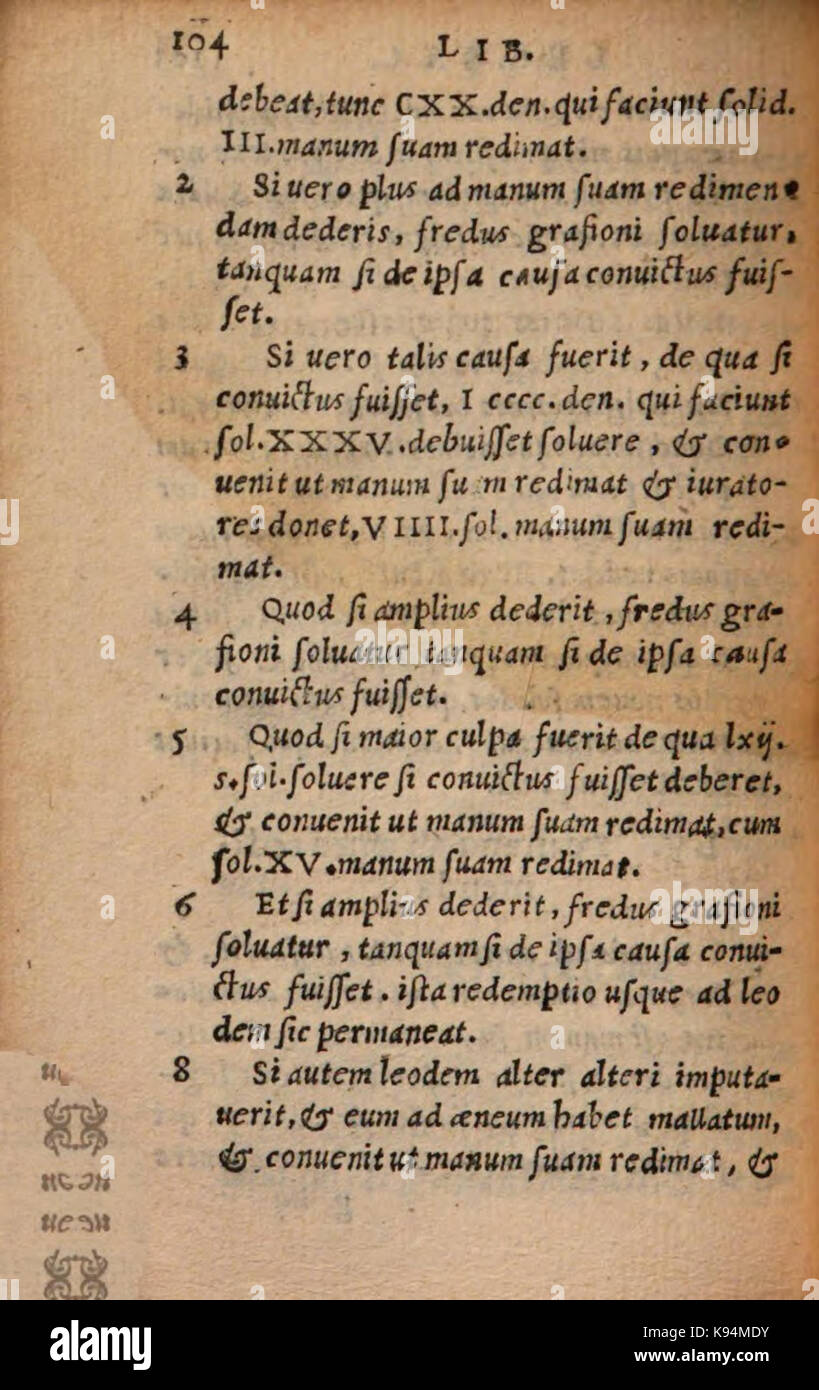 104 LIB.
debeat, tunc CXX. den. qui faciunt ſolid.
III. manum ſuam redimat.
2 Si uero plus ad manum ſuam redimen-
dam dederis, fredus graſioni ſoluatur,
tanquam ſi de ipſa cauſa conuictus fuiſ-
ſet.
3 Si uero talis cauſa fuerit, de qua ſi
conuictus fuiſſet, I cccc. den. qui faciunt
ſol. XXXV. debuiſſet ſoluere, & con-
uenit ut manum redimat & iurato-
res donet, VIIII. ſol. manum ſuam redi-
mat.
4 Quod ſi amplius dederit, fredus gra-
fioni ſoluatur tanquam ſi de ipſa cauſa
conuictus fuiſſet.
5 Quod ſi maior culpa fuerit de qua lxij.
s. ſoluere ſi conuictus fuiſſet deberet,
& conuenit ut manum ſuam redimat, cum
ſol. XV. manum ſuam redimat.
6 Et ſi amplius dederit, fredus graſioni
ſoluatur, tanquam ſi de ipſa cauſa conui-
ctus fuiſſet. iſta redemptio uſque ad leo
dem ſic permaneat.
8 Si autem leodem alter alteri imputa-
uerit, & eum ad æneum habet mallatum,
&. conuenit ut manum ſuam redimat, &
alamy
K94MDY
www.alamy.com